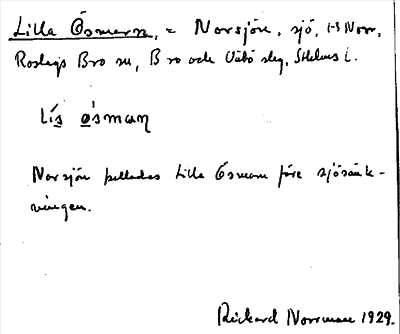 Lilla Ösmaren, = Norsjön, sjö, i Norr,
Roslags Bro sn, Bro och Vätö slg, Sthlms l.
lis ösman
Norsjön kallades Lilla Ösmaren före sjösänk-
ningen.
Rickard Norrman 1929.